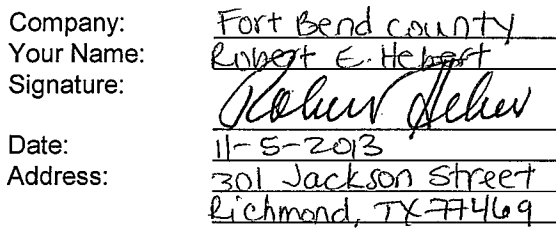 Company: Fort Bend County
Your Name: Robert E. Hebert
Signature: Robert Heber
Date: 11-5-2013
Address: 301 Jackson Street
Richmond, TX 77469